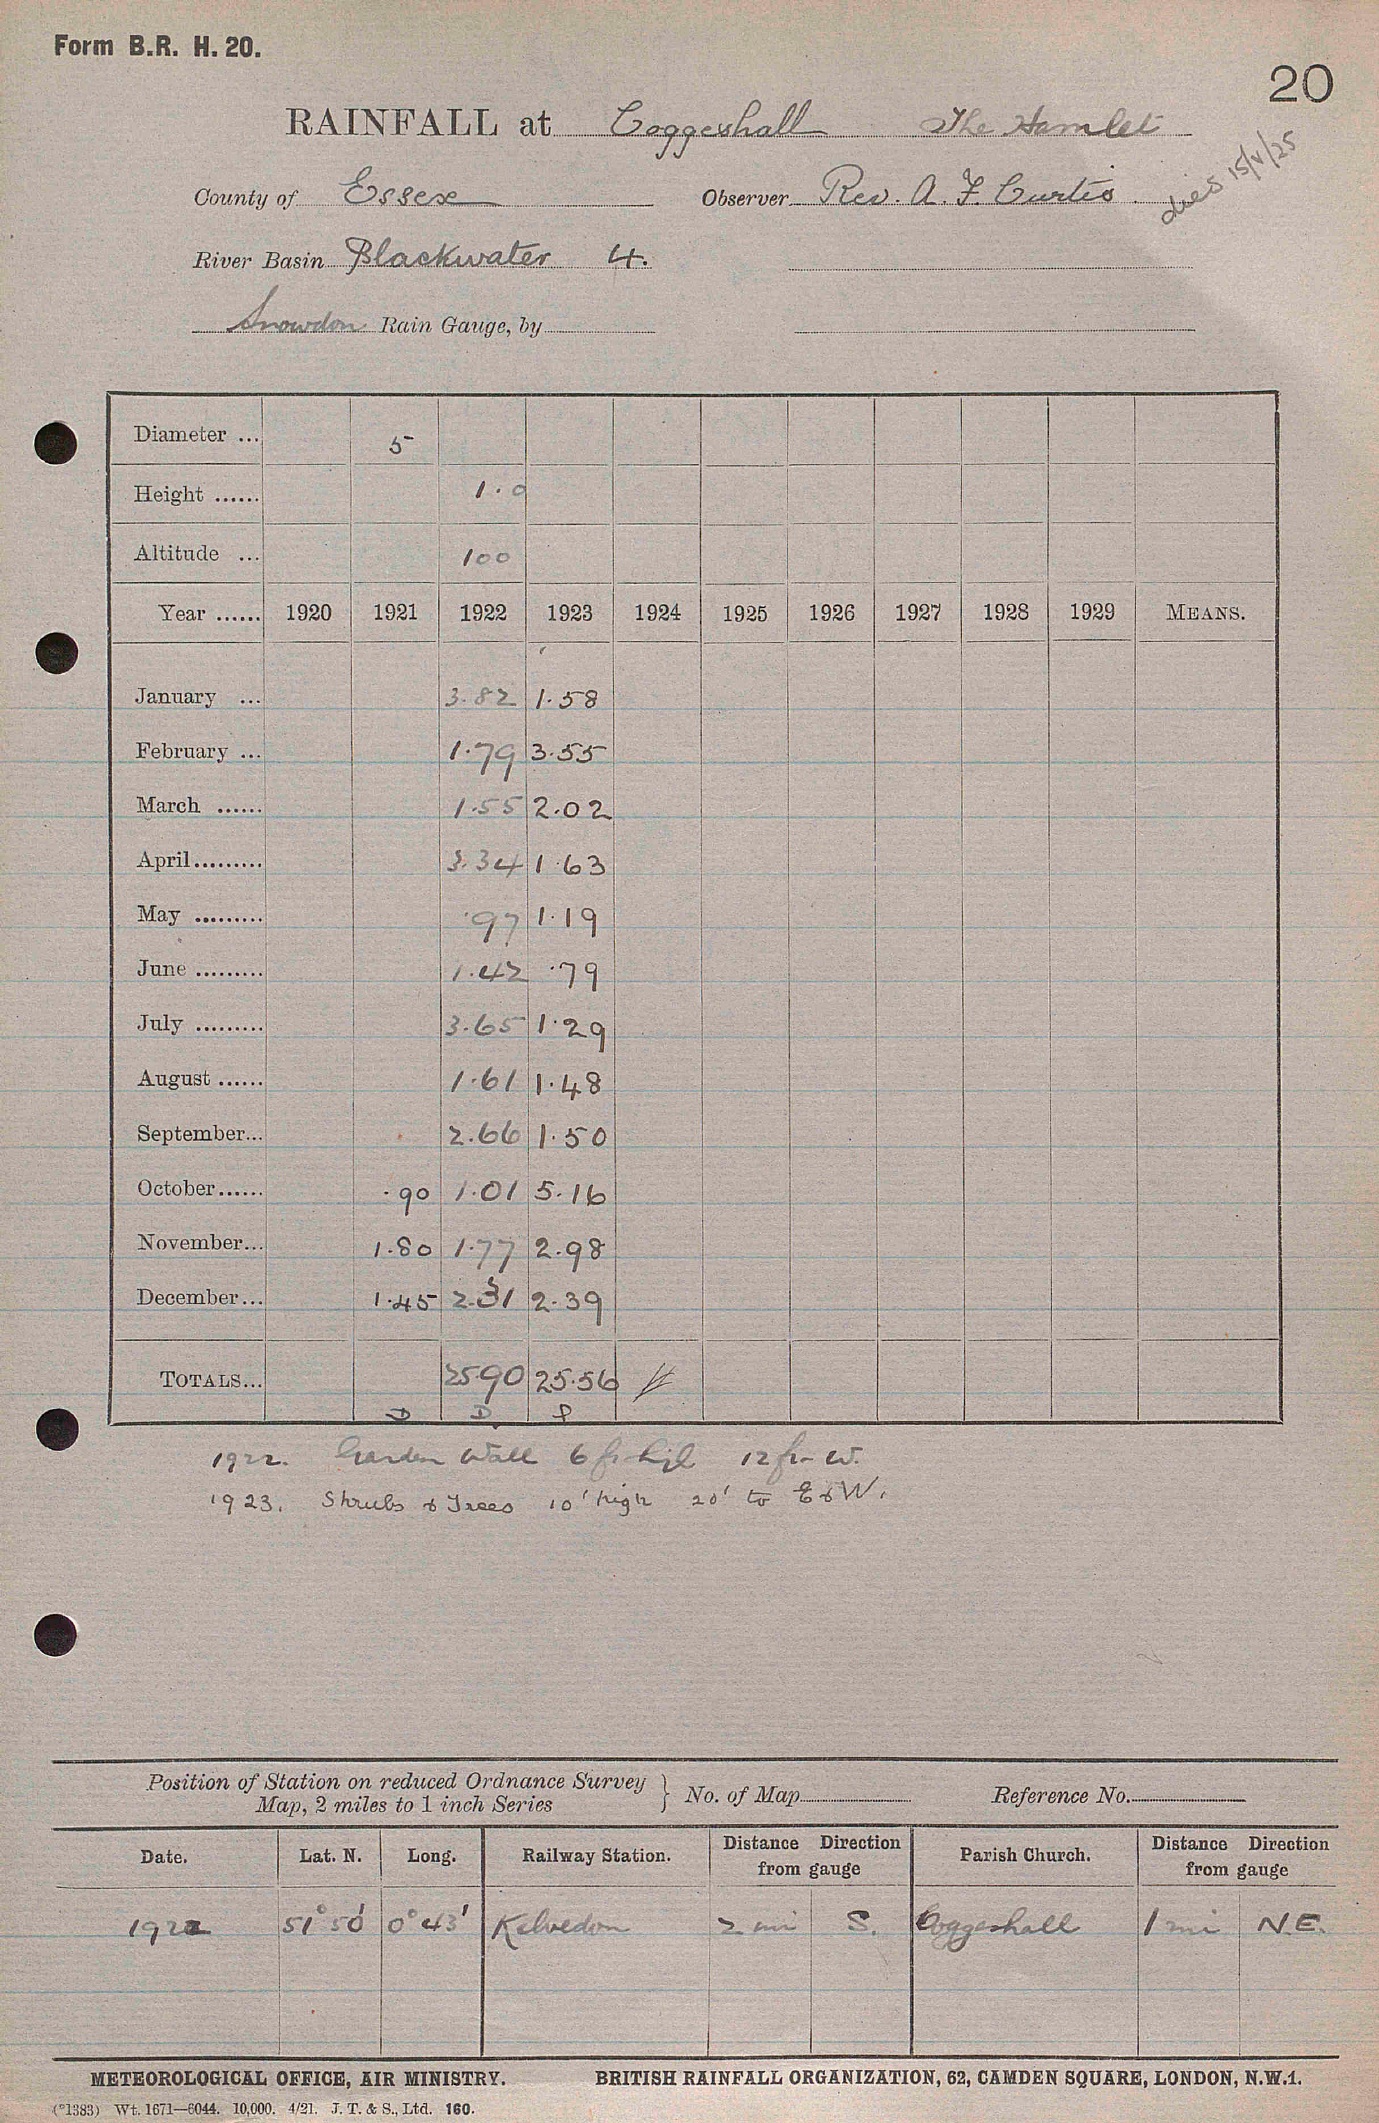 Form B.R. H. 20.
20
RAINFALL at Coggeshall The Hamlet
died 15/V/25
County of Essex Observer Rev. A. F. Curtis.
River Basin Blackwater 4.
Snowdon Rain Gauge, by
Diameter ... 5
Height ...... 1.0
Altitude ... 100
Year ...... 1920 1921 1922 1923 1924 1925 1926 1927 1928 1929 MEANS.
January ... 3.82 1.58
February ... 1.79 3.55
March ...... 1.55 2.02
April......... 3.34 1.63
May ......... .97 1.19
June ......... 1.42 .79
July ......... 3.65 1.29
August ...... 1.61 1.48
September... 2.66 1.50
October...... .90 1.01 5.16
November... 1.80 1.77 2.98
December... 1.45 2.31 2.39
TOTALS... 25.90 25.56
D D P
1922. Garden Wall 6 ft high 12 ft W.
1923. Shrubs & Trees 10' high 20' to E & W.
Position of Station on reduced Ordnance Survey
Map, 2 miles to 1 inch Series } No. of Map Reference No.
Date. Lat. N. Long. Railway Station. Distance Direction from gauge Parish Church. Distance Direction from gauge
1922 51° 50' 0° 43' Kelvedon 2 mi S. Coggeshall 1 mi N.E.
METEOROLOGICAL OFFICE, AIR MINISTRY. BRITISH RAINFALL ORGANIZATION, 62, CAMDEN SQUARE, LONDON, N.W.1.
(*1383) Wt. 1671—6044. 10,000. 4/21. J. T. & S., Ltd. 160.